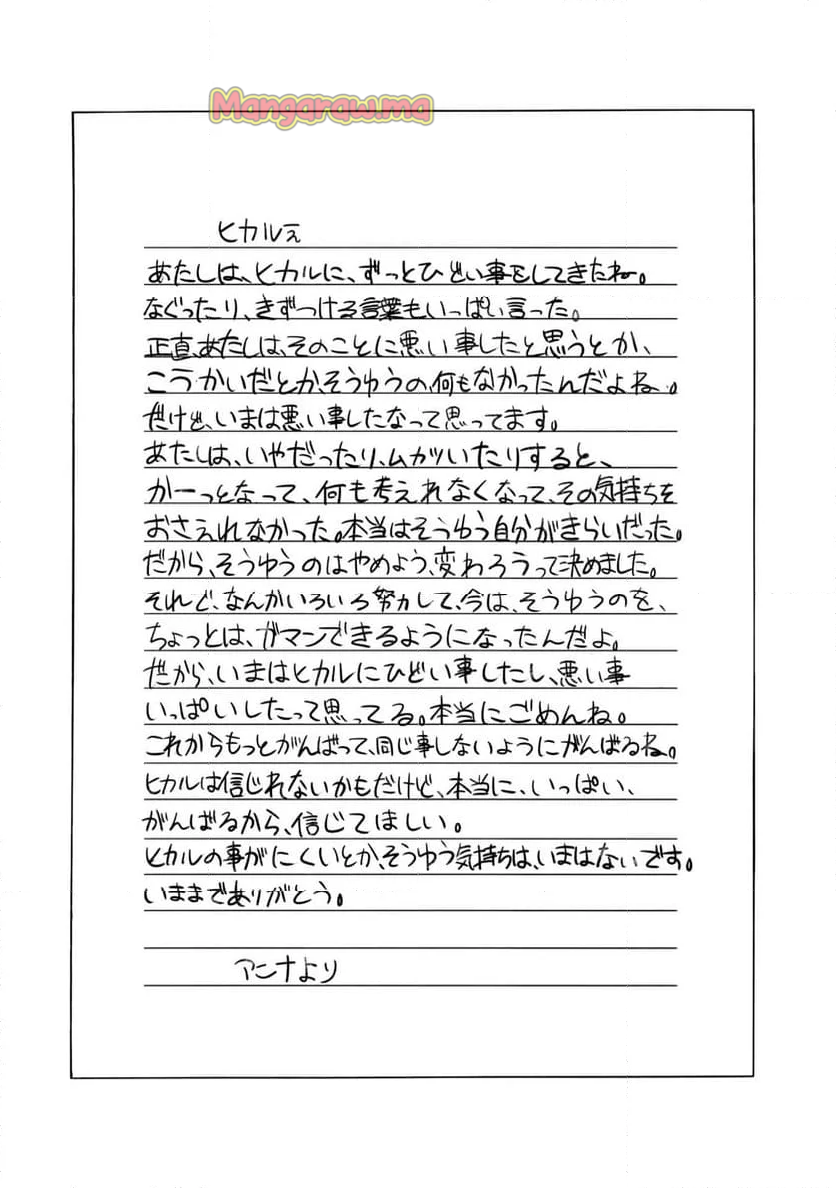 Mangaraw.ma
ヒカルえ
あたしは、ヒカルに、ずっとひどい事をしてきたねー。
なぐったり、きずつける言葉もいっぱい言った。
正直、あたしは、そのことに悪い事したと思うとか、
こうかいだとか、そうゆうの、何もなかったんだよね。
だけど、いまは悪い事したなって思ってます。
あたしは、いやだったり、ムカツいたりすると、
かーっとなって、何も考えれなくなって、その気持ちを
おさえれなかった。本当はそうゆう自分がきらいだった。
だから、そうゆうのはやめよう、変わろうって決めました。
それで、なんかいろいろ努力して、今は、そうゆうのを、
ちょっとは、ガマンできるようになったんだよ。
だから、いまはヒカルにひどい事したし、悪い事
いっぱいしたって思ってる。本当にごめんね。
これからもっとがんばって、同じ事しないようにがんばるね。
ヒカルは信じれないかもだけど、本当に、いっぱい、
がんばるから、信じてほしい。
ヒカルの事がにくいとか、そうゆう気持ちは、いまはないです。
いままでありがとう。
アンナより